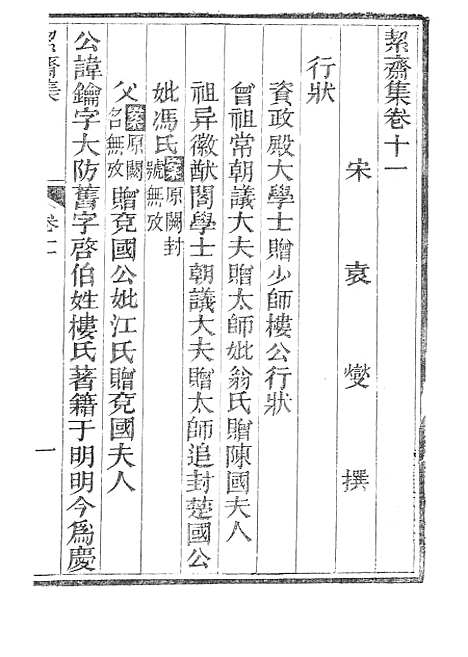 絜齋集卷十一
宋袁燮撰
行狀
資政殿大學士贈少師樓公行狀
曾祖常朝議大夫贈太師妣翁氏贈陳國夫人
祖异徽猷閣學士朝議大夫贈太師追封楚國公
妣馮氏案原闕封號無攷
父案原闕名無攷贈兗國公妣江氏贈兗國夫人
公諱鑰字大防舊字啓伯姓樓氏著籍于明明今爲慶
絜齋集
卷十一
一